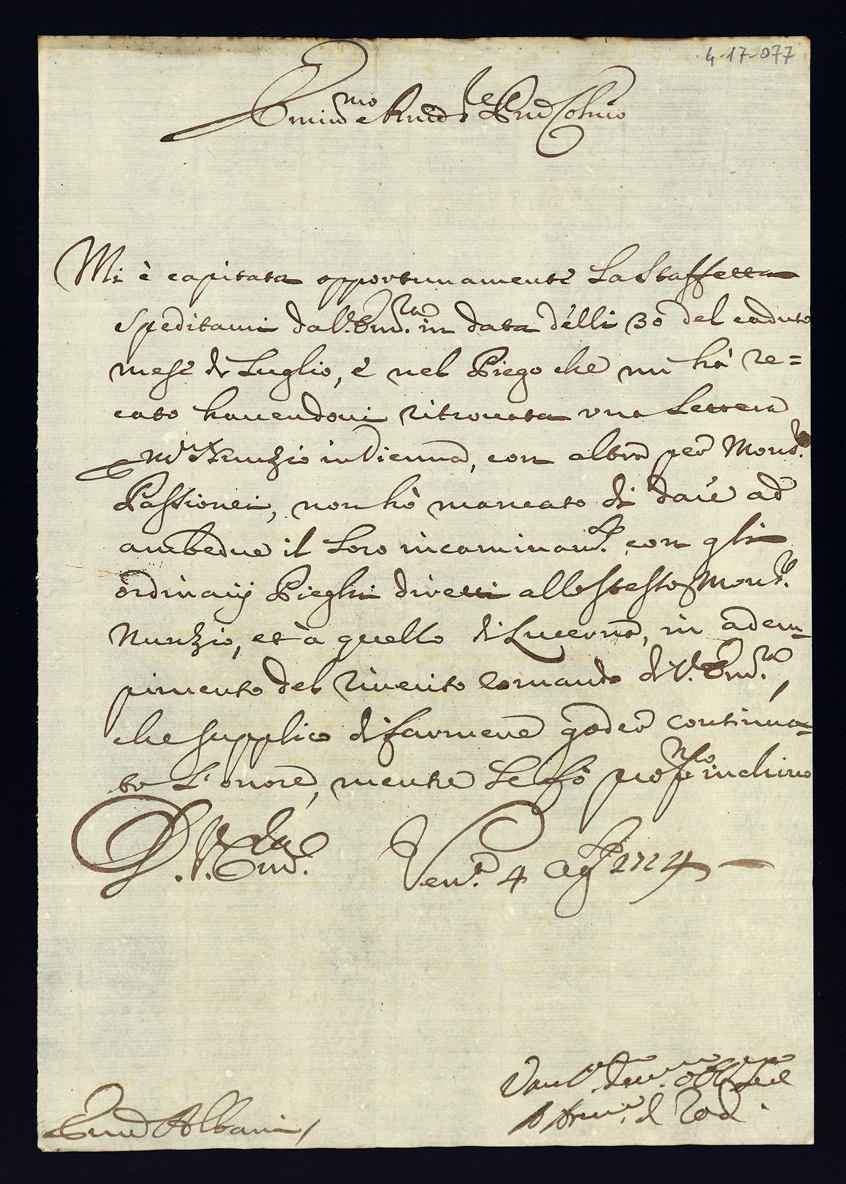 4-17-077
Emin.mo e Rev.
Mi è capitata opportunamente La Staffetta
speditami dal V. Em.za in data delli 30 del caduto
mese di Luglio, è nel Piego che mi hà re=
cato havendoui ritrouata vna Lettera
Nunzio in Vienna, con altra per Mons.r
Passionei, non hò mancato di dare ad
ambedue il Loro incaminam.to con gli
ordinarij Pieghi diretti allo stesso Mons.r
Nunzio, et à quello di Lucerna, in adem=
pimento del riuerito comando di V. Em.za,
che supplico di farmene goder continua=
to L'onore, mentre Le fò prof.mo inchino
D. V. Em.za Ven.a 4 Ag.to 1724
Em. Albani